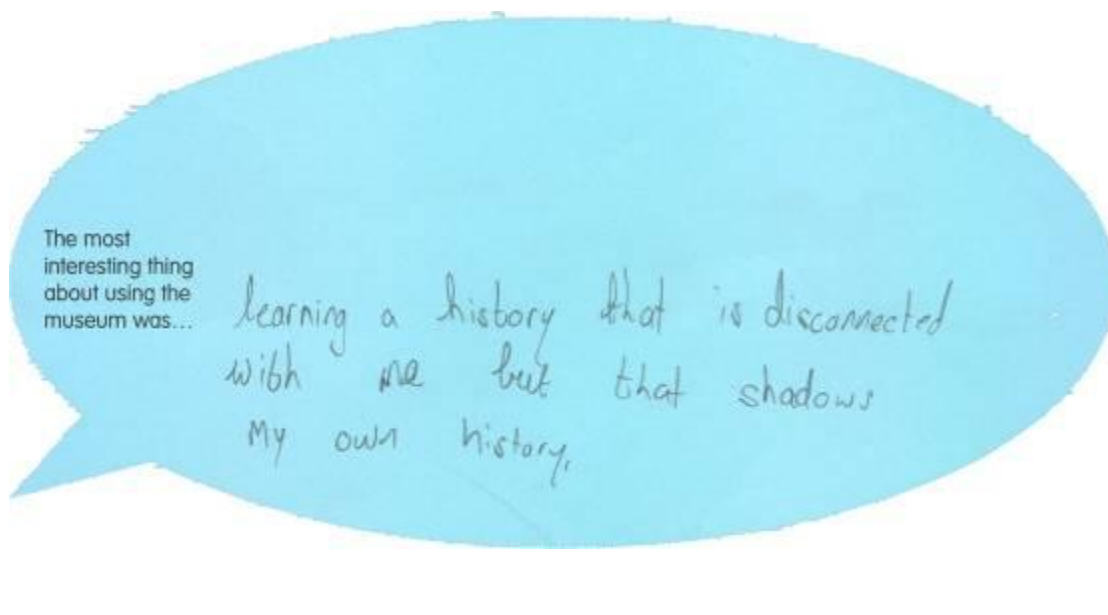 The most
interesting thing
about using the
museum was...
learning a history that is disconnected
with me but that shadows
My own history,